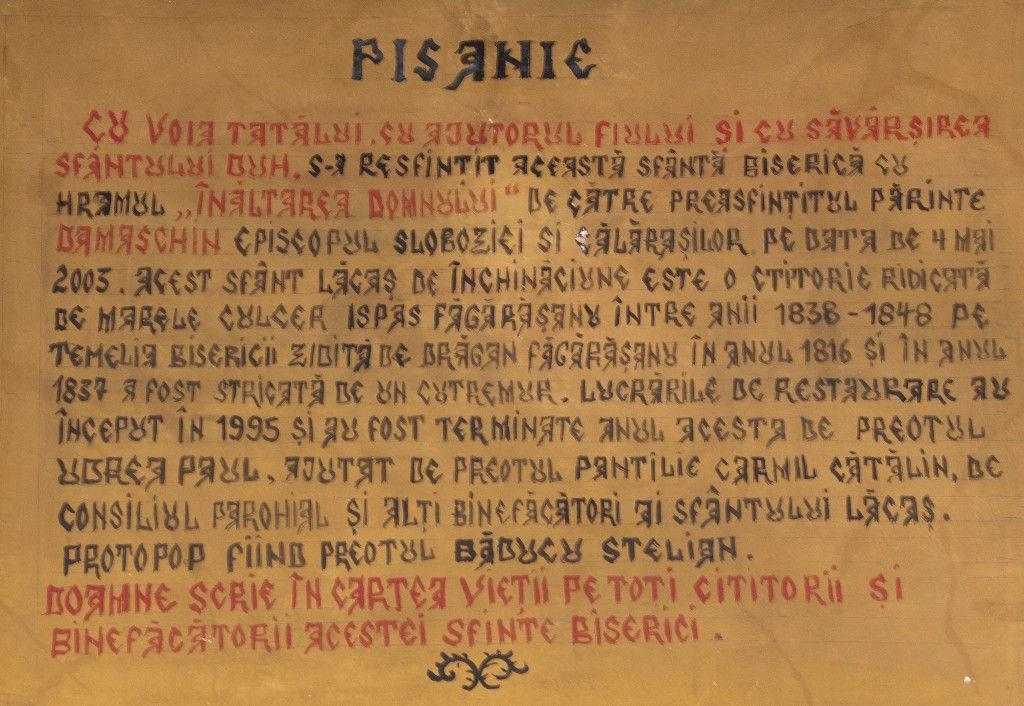 PISANIE
CU VOIA TATĂLUI, CU AJUTORUL FIULUI ȘI CU SĂVÂRȘIREA
SFÂNTULUI DUH, S-A RESFINTIT ACEASTĂ SFÂNTĂ BISERICĂ CU
HRAMUL „ÎNĂLTAREA DOMNULUI“ DE CĂTRE PREASFINȚITUL PĂRINTE
DAMASCHIN EPISCOPUL SLOBOZIEI SI CĂLĂRAȘILOR, PE DATA DE 4 MAI
2003. ACEST SFÂNT LĂCAȘ DE ÎNCHINĂCIUNE ESTE O CTITORIE RIDICATĂ
DE MARELE CULCER ISPAS FĂGĂRĂȘANU ÎNTRE ANII 1838-1848 PE
TEMELIA BISERICII ZIDITĂ DE DRĂGAN FĂGĂRĂȘANU ÎN ANUL 1816 ȘI ÎN ANUL
1837 A FOST STRICATĂ DE UN CUTREMUR. LUCRĂRILE DE RESTAURARE AU
ÎNCEPUT ÎN 1995 ȘI AU FOST TERMINATE ANUL ACESTA DE PREOTUL
UDREA PAUL, AJUTAT DE PREOTUL PANTILIE CARMIL CĂTĂLIN, DE
CONSILIUL PAROHIAL ȘI ALȚI BINEFĂCĂTORI AI SFÂNTULUI LĂCAȘ.
PROTOPOP FIIND PREOTUL BĂDUCU STELIAN.
DOAMNE SCRIE ÎN CARTEA VIEȚII PE TOTI CITITORII ȘI
BINEFĂCĂTORII ACESTEI SFINTE BISERICI.